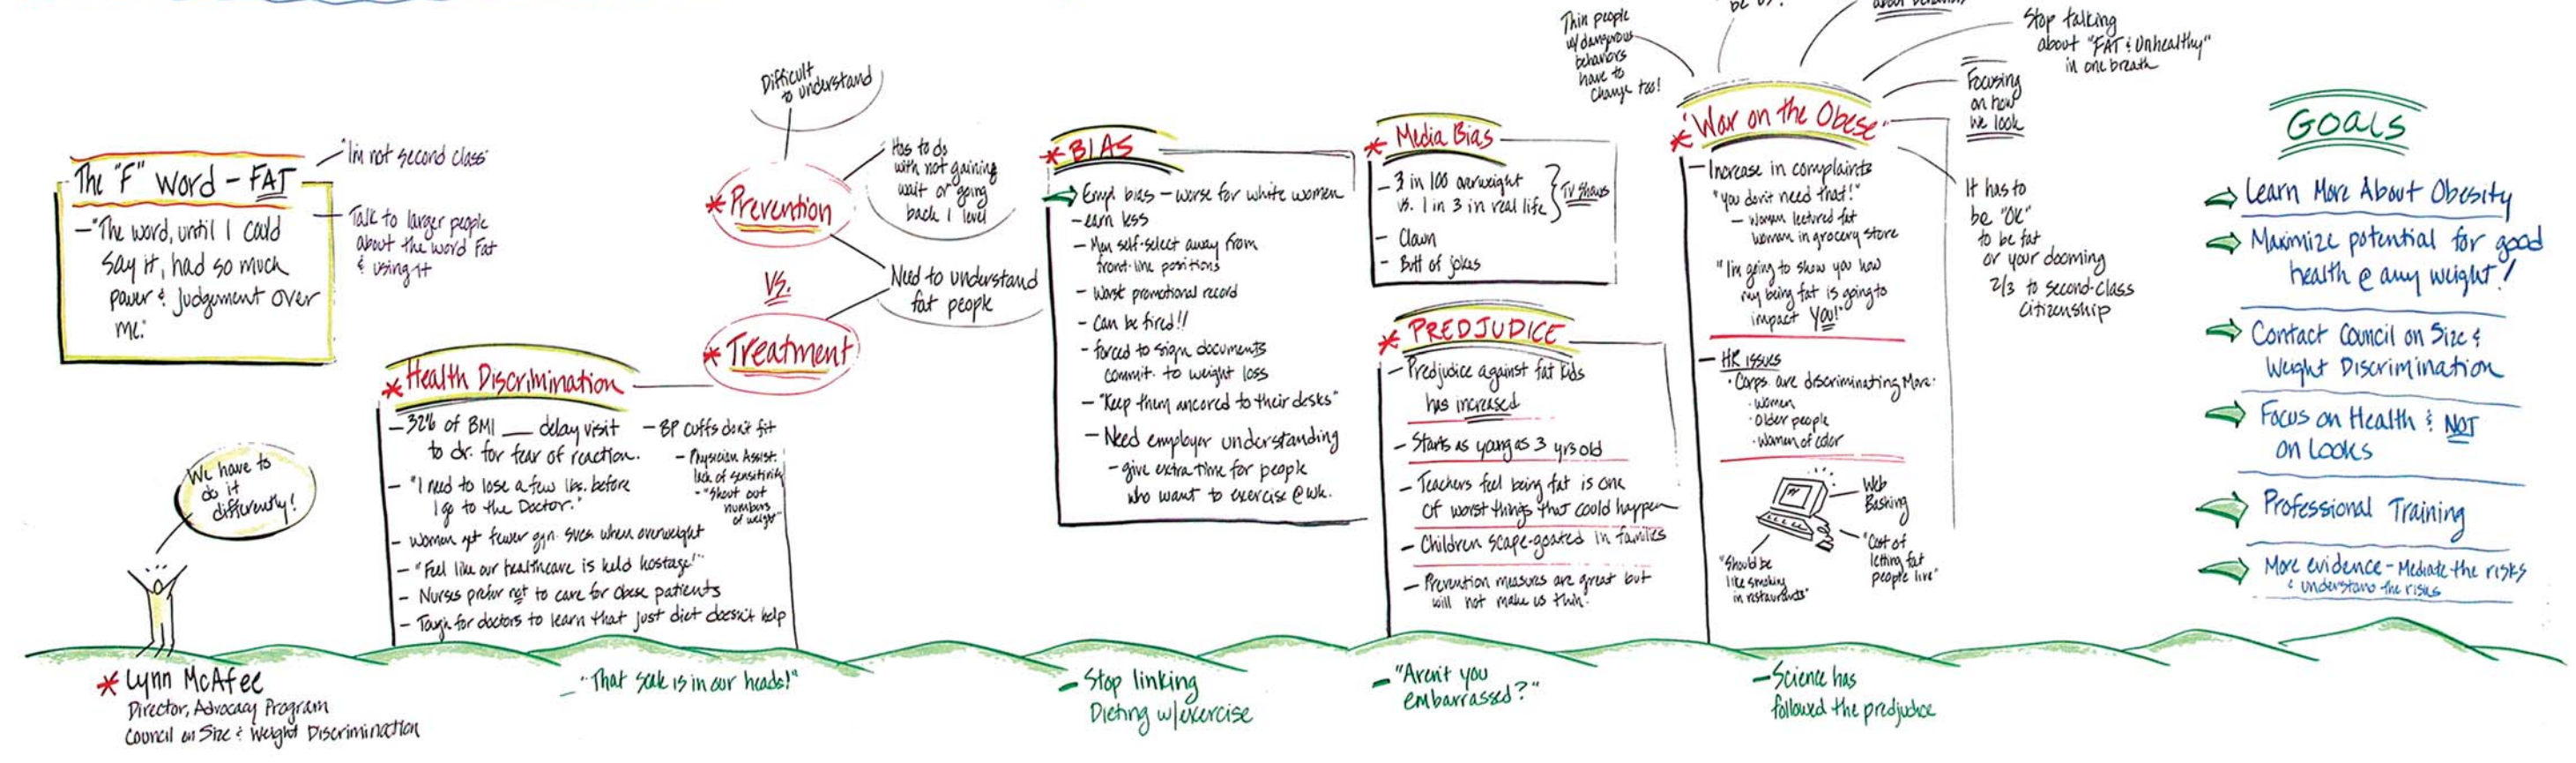 The "F" Word - FAT
-"The word, until I could
say it, had so much
power & Judgement over
me."
"I'm not second class"
Talk to larger people
about the word Fat
& using it
We have to
do it
differently!
* Lynn McAfee
Director, Advocacy Program
Council on Size & Weight Discrimination
* Health Discrimination
- 32% of BMI ___ delay visit
to dr. for fear of reaction.
- "I need to lose a few lbs. before
I go to the Doctor."
- Women get fewer gyn. svcs. when overweight
- "Feel like our healthcare is held hostage!"
- Nurses prefer not to care for obese patients
- Tough for doctors to learn that just diet doesn't help
- BP cuffs don't fit
- Physician Assist.
lack of sensitivity
- "Shout out
numbers
of weight"
Difficult
to understand
* Prevention
Has to do
with not gaining
wait or going
back 1 level
VS.
* Treatment
Need to understand
fat people
- "That scale is in our heads!"
* BIAS
Empl. bias - worse for white women
- earn less
- Men self-select away from
front-line positions
- Worst promotional record
- Can be fired!!
- forced to sign documents
commit. to weight loss
- "Keep them ancored to their desks"
- Need employer understanding
- give extra time for people
who want to exercise @ wk.
- Stop linking
Dieting w/exercise
* Media Bias
- 3 in 100 overweight
vs. 1 in 3 in real life
TV Shows
- Clown
- Butt of jokes
* PREDJUDICE
- Predjudice against fat kids
has increased
- Starts as young as 3 yrs old
- Teachers feel being fat is one
of worst things that could happen
- Children scape-goated in families
- Prevention measures are great but
will not make us thin.
- "Aren't you
embarrassed?"
Thin people
w/dangerous
behaviors
have to
change too!
be us?
about behaviors
Stop talking
about "FAT & Unhealthy"
in one breath
Focusing
on how
we look
It has to
be "OK"
to be fat
or your dooming
2/3 to second-class
citizenship
* "War on the Obese"
- Increase in complaints
"you don't need that!"
- Woman lectured fat
woman in grocery store
"I'm going to show you how
my being fat is going to
impact you!"
- HR issues
• Corps. are discriminating More:
• Women
• Older people
• Women of color
Web
Bashing
"Should be
like smoking
in restaurants"
"Cost of
letting fat
people live"
- Science has
followed the predjudice
GOALS
Learn More About Obesity
Maximize potential for good
health @ any weight!
Contact Council on Size &
Weight Discrimination
Focus on Health & NOT
on Looks
Professional Training
More evidence - Mediate the risks
& understand the risks